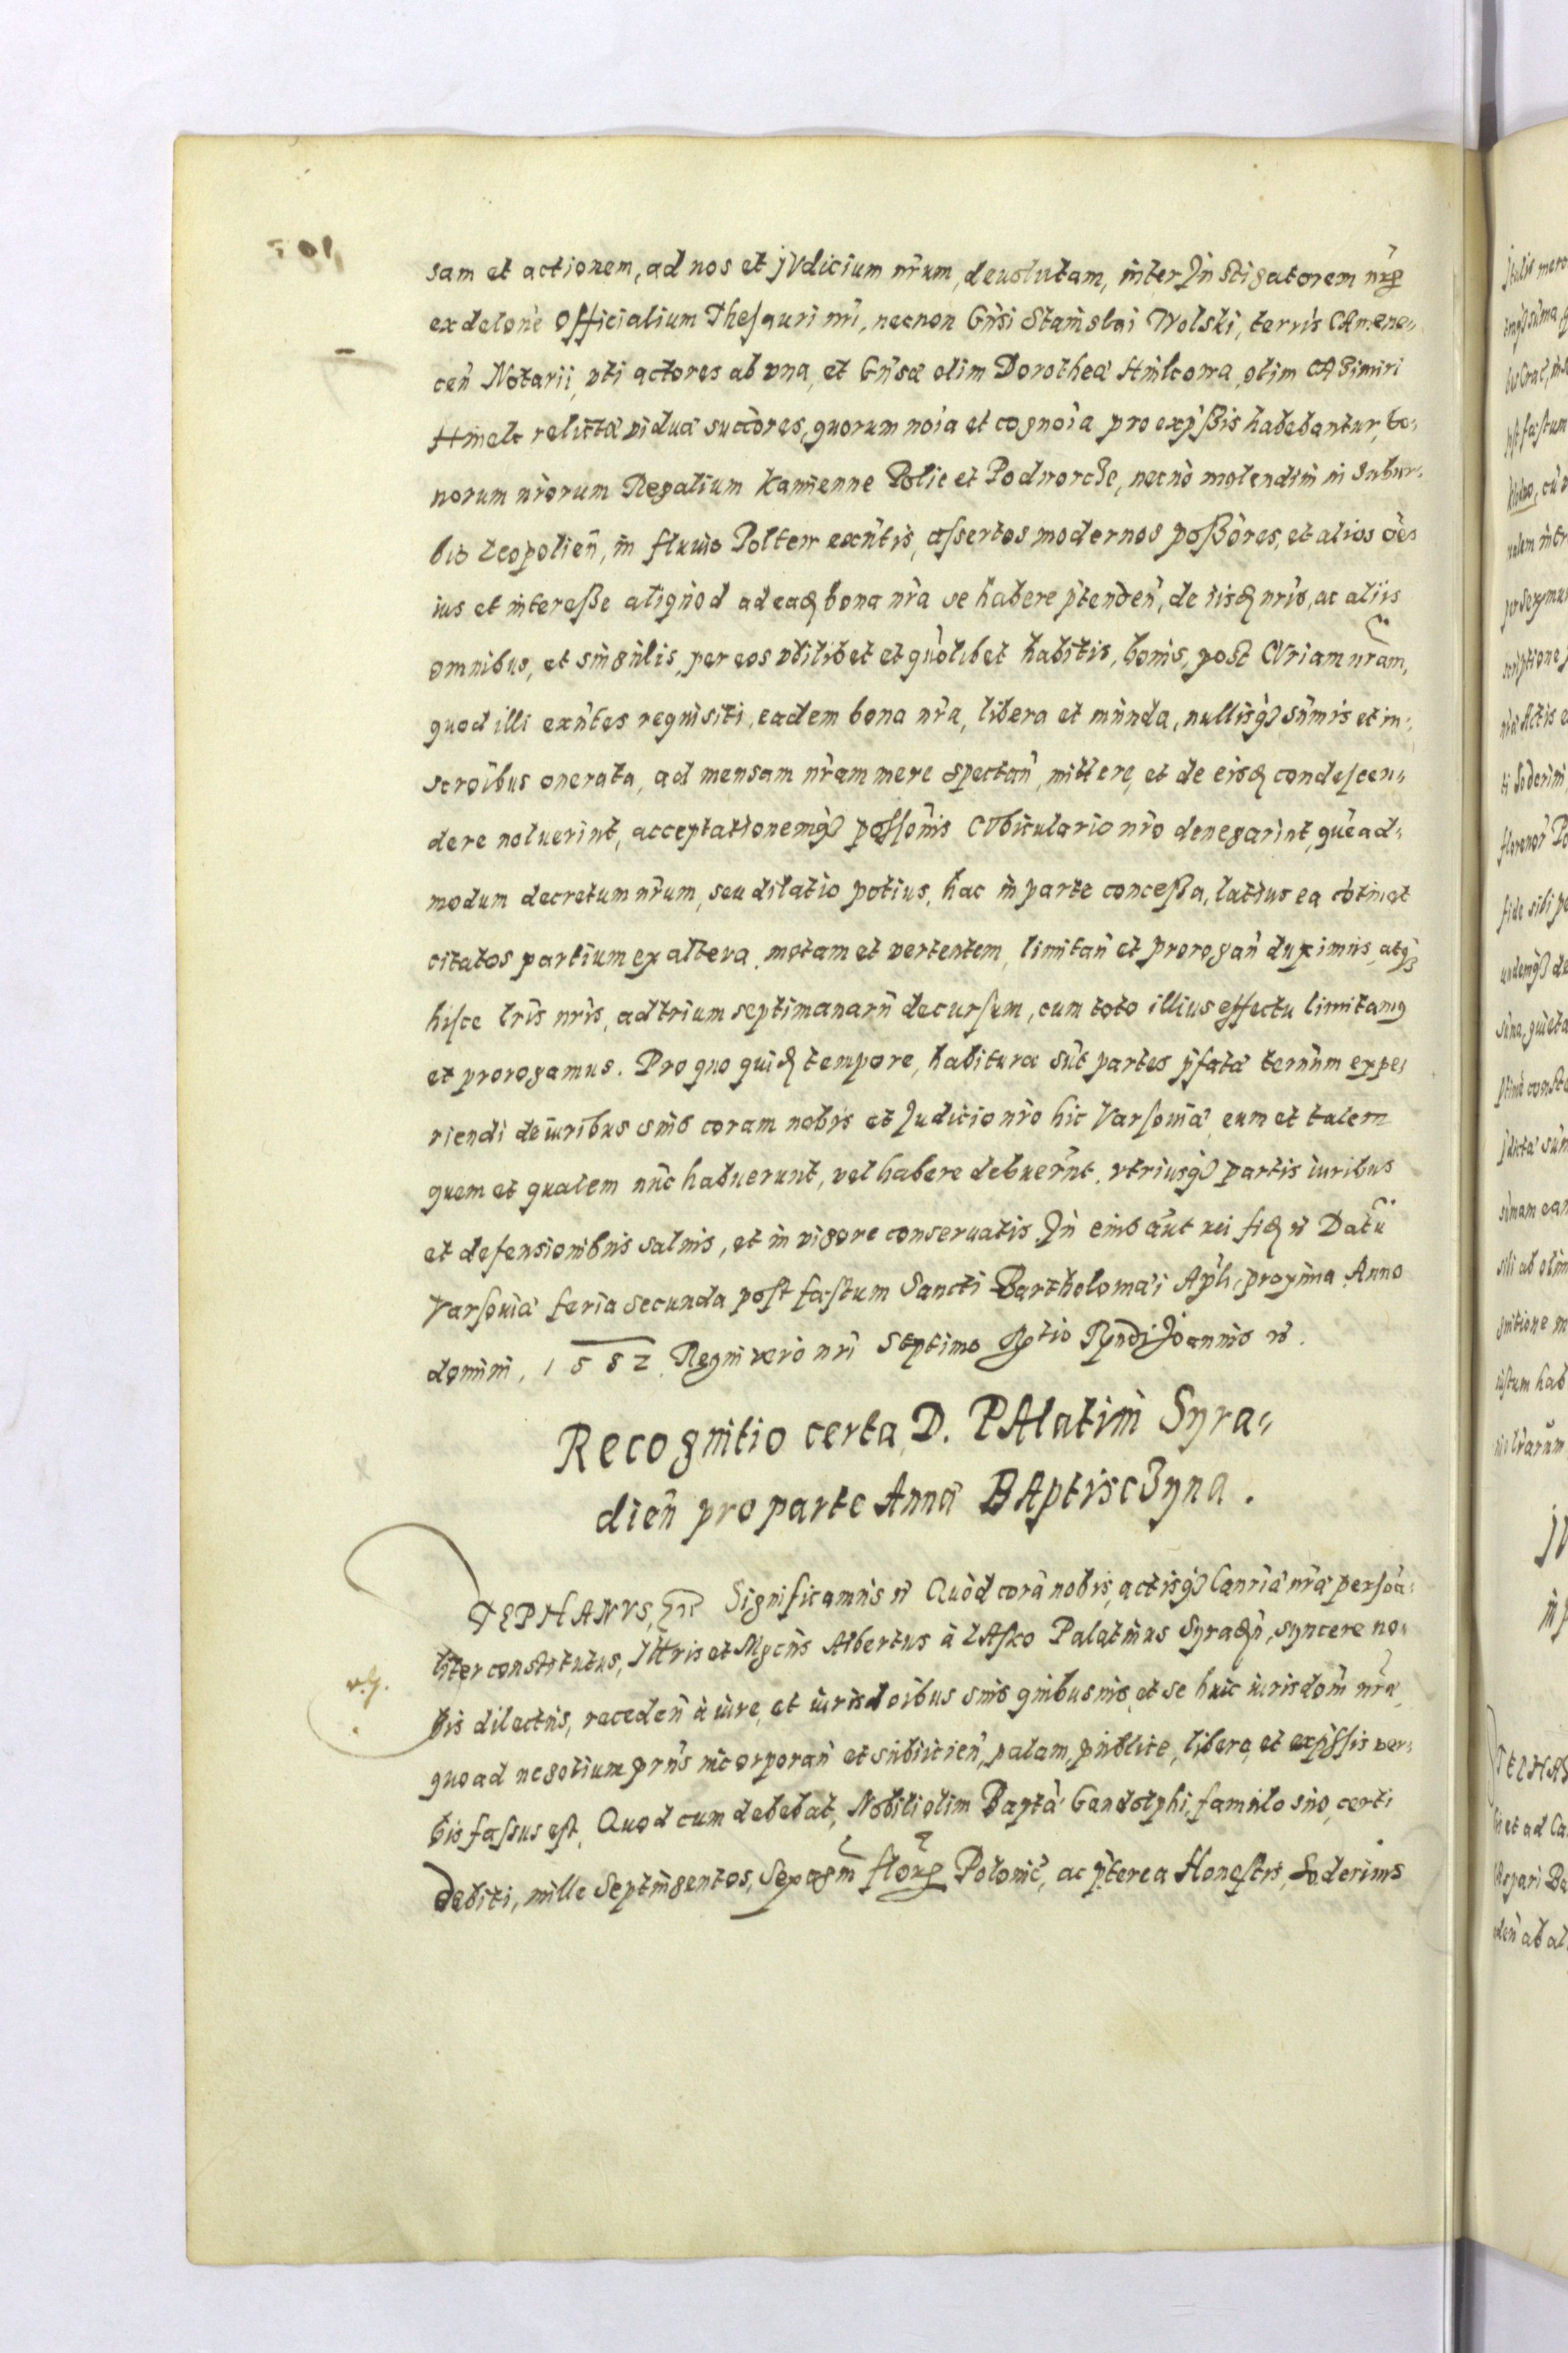 sam et actionem, ad nos et jVdicium nr̃um, deuolutam, inter Jnstigatorem nr̃
ex delõne Officialium Thesauri nr̃i, necnon Gñsi Stanislai Wolski, terris CAmene-
ceñ Notarii, vti actores ab vna, et Gñsæ olim Dorotheæ Hmlcowa, olim CASimiri
Hmelc relictæ viduæ succõres, quorum noĩa et cognoĩa pro exp̃ssis habebantur, bo-
norum nr̃orum Regalium Kamienne Polie et Podworcze, necnõ molendini in subur-
bio Leopolieñ, in fluuio Poltew exñtis, assertos modernos possõres, et alios oẽs
ius et interesse aliquod ad eadẽ bona nr̃a se habere p̃tendeñ, de iisdẽ nr̃is, ac aliis
omnibus, et singulis, per eos vbilibet et quolibet habitis, bonis, post CVriam nr̃am,
quod illi exñtes requisiti, eadem bona nr̃a, libera et munda, nullisq̃ sum̃is et in-
scr̃oibus onerata, ad mensam nr̃am mere spectañ, mittere, et de eisdẽ condescen-
dere noluerint, acceptationemq̃ possõnis CVbiculario nr̃o denegarint, quẽad-
modum decretum nr̃um, seu dilatio potius, hac in parte concessa, latius ea cõtinet
citatos partium ex altera, motam et vertentem, limitañ et prorogañ duximus, atq̃
hisce lr̃is nr̃is, ad trium septimanarũ decursum, cum toto illius effectu limitamus
et prorogamus. Pro quo quidẽ tempore, habituræ sũt partes p̃fatæ termum expe-
riendi de iuribus suis coram nobis et Judicio nr̃o hic Varsouiæ, eum et talem
quem et qualem nũc habuerunt, vel habere debuerũnt. vtriusq̃ partis iuribus
et defensionibus saluis, et in vigore conseruatis. Jn eius aũt rei fidẽ Datũ
Varsouiæ feria secunda post festum Sancti Bartholomæi Apl̃i, proxima Anno
domini, 1582. Regni vero nr̃i Septimo Joannis
Recognitio certa, D. PAlatini Syra-
dieñ pro parte Annæ BAptisczyna.
STEPHANVS, Significamus Quod corã nobis, actisq̃ Canr̃iæ nr̃æ persoã-
liter constitutus, Jll̃ris et Mgc̃us Albertus à LAsko Palatinus Syradẽ, syncere no-
bis dilectus, recedeñ à iure, et iurisdõibus suis quibusuis, et se huic iurisdoñi nr̃æ,
quo ad negotium prñs incorporañ et subiicieñ, palam, publice, libere, et exp̃ssis ver-
bis fassus est, Quod cum debebat, Nobili olim Baptæ Gandolphi, famulo suo, certi
debiti, mille Septingentos, Sexagin̄ Polonic̃, ac p̃terea Honestis, Soderinis